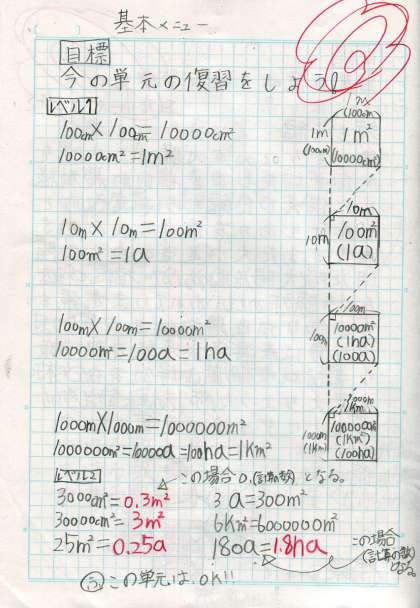 基本メニュー
目標
今の単元の復習をしよう!
レベル1
100cm×100cm=10000cm²
10000cm²=1m²
1m
(100cm)
1m
(100cm)
1m²
(10000cm²)
10m×10m=100m²
100m²=1a
10m
10m
100m²
(1a)
100m×100m=10000m²
10000m²=100a=1ha
100m
100m
10000m²
(1ha)
(100a)
1000m×1000m=1000000m²
1000000m²=10000a=100ha=1km²
1000m
1km
1000m
(1km)
(1km²)
(100ha)
レベル2
この場合0.(計算の数)となる。
3000cm²=0.3m²
30000cm²=3m²
25m²=0.25a
3a=300m²
6km²=6000000m²
180a=1.8ha
この場合
(計算の数)
となる。
この単元は、OK!!